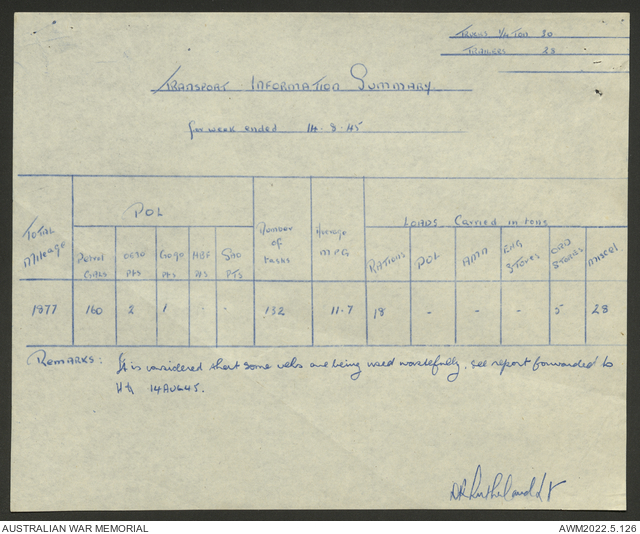 TRUCKS 1/4 TON 30
TRAILERS 28
TRANSPORT INFORMATION SUMMARY
for week ended 14.8.45
TOTAL Mileage
POL
Number of tasks
Average M.P.G
LOADS Carried in tons
Petrol Galls
PTS
PTS
HBF PTS
PTS
RATIONS
POL
AMN
ENG STORES
ORD STORES
MISCEL
1877 160 2 1 - - 132 11.7 18 - - - 5 28
REMARKS: It is considered that some vehs are being used wastefully, see report forwarded to
HQ 14 AUG 45.
DR Rutherland Lt
AUSTRALIAN WAR MEMORIAL
AWM2022.5.126